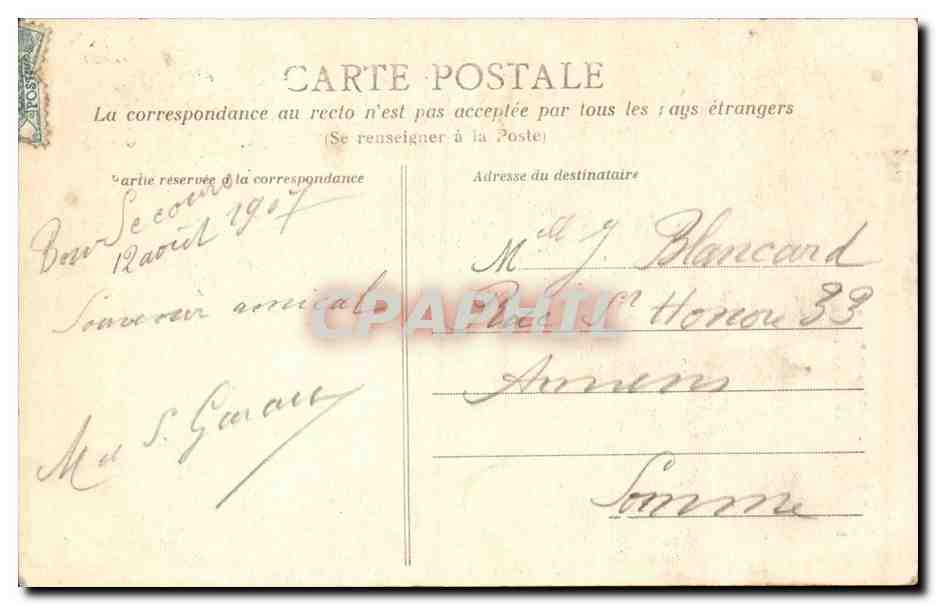 POSTE
CARTE POSTALE
La correspondance au recto n'est pas acceptée par tous les pays étrangers
(Se renseigner à la Poste)
Partie réservée à la correspondance
Adresse du destinataire
Bon Secours
12 août 1907
Souvenir amical
M S.
Mlle J. Blancard
Rue St Honoré 33
Amiens
Somme
CPAPHIL